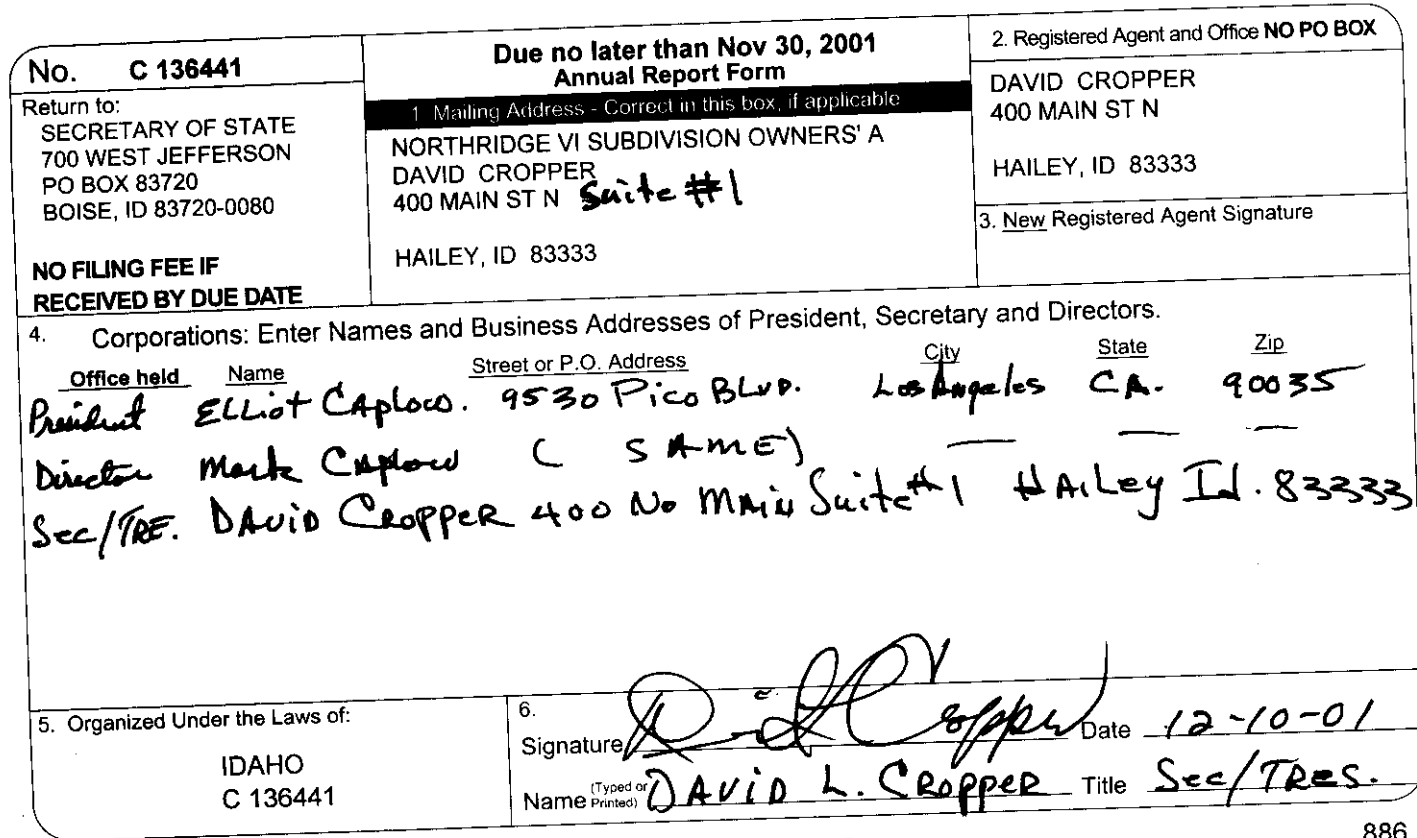 No. C 136441
Return to:
SECRETARY OF STATE
700 WEST JEFFERSON
PO BOX 83720
BOISE, ID 83720-0080
NO FILING FEE IF
RECEIVED BY DUE DATE
Due no later than Nov 30, 2001
Annual Report Form
1 Mailing Address - Correct in this box, if applicable
NORTHRIDGE VI SUBDIVISION OWNERS' A
DAVID CROPPER
400 MAIN ST N Suite #1
HAILEY, ID 83333
2. Registered Agent and Office NO PO BOX
DAVID CROPPER
400 MAIN ST N
HAILEY, ID 83333
3. New Registered Agent Signature
4. Corporations: Enter Names and Business Addresses of President, Secretary and Directors.
Office held Name Street or P.O. Address City State Zip
President ELLiot CAplow. 9530 Pico BLVD. Los Angeles CA. 90035
Director Mark CAplow ( SAME) — — —
Sec/TRE. DAViD CROPPER 400 No MAiN Suite #1 HAiLey Id. 83333
5. Organized Under the Laws of:
IDAHO
C 136441
6.
Signature D L Cropper Date 12-10-01
Name (Typed or Printed) DAViD L. CROPPER Title Sec/TRes.
886